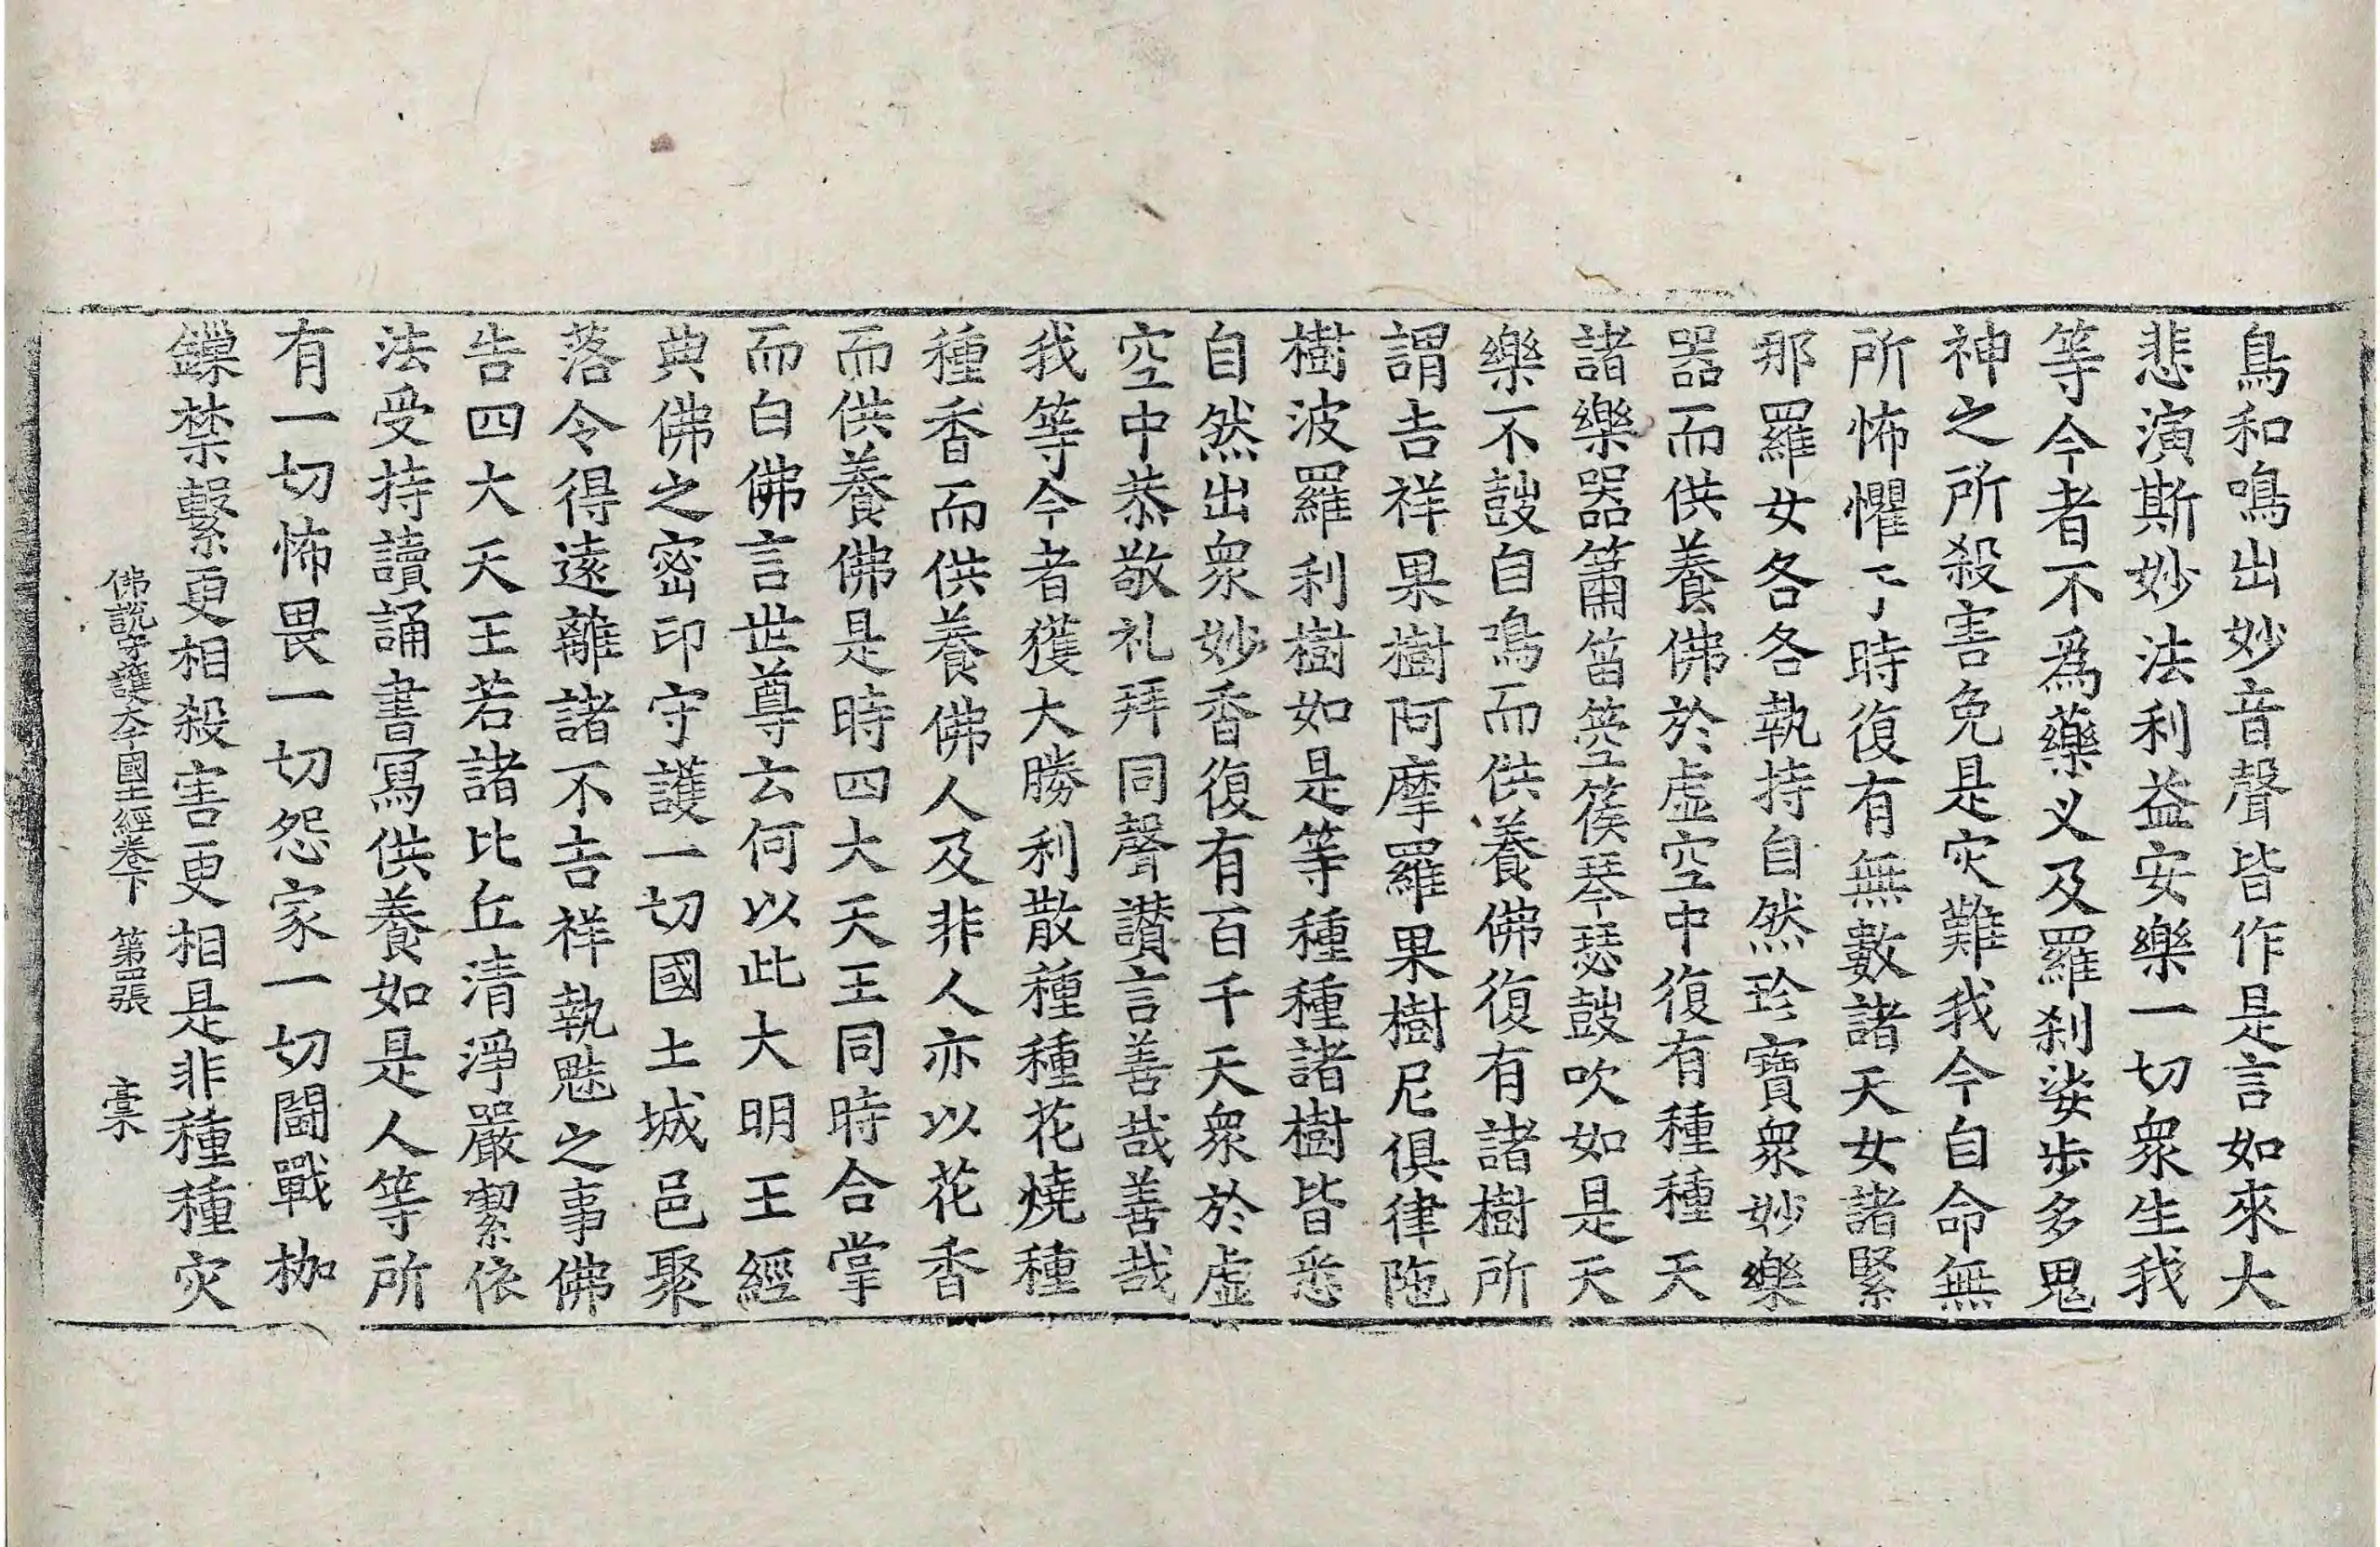 鳥和鳴出妙音聲皆作是言如來大
悲演斯妙法利益安樂一切衆生我
等今者不爲藥义及羅刹娑步多鬼
神之所殺害免是灾難我今自命無
所怖懼于時復有無數諸天女諸緊
那羅女各各執持自然珍寶衆妙樂
器而供養佛於虛空中復有種種天
諸樂器簫笛箜篌琴瑟鼓吹如是天
樂不鼓自鳴而供養佛復有諸樹所
謂吉祥果樹阿摩羅果樹尼俱律陁
樹波羅利樹如是等種種諸樹皆悉
自然出衆妙香復有百千天衆於虛
空中恭敬礼拜同聲讃言善哉善哉
我等今者獲大勝利散種種花燒種
種香而供養佛人及非人亦以花香
而供養佛是時四大天王同時合掌
而白佛言世尊云何以此大明王經
典佛之密印守護一切國土城邑聚
落令得遠離諸不吉祥執魅之事佛
告四大天王若諸比丘清淨嚴潔依
法受持讀誦書寫供養如是人等所
有一切怖畏一切怨家一切鬪戰枷
鏁禁繫更相殺害更相是非種種灾
佛說守護大千國土經卷下 第四張 槖